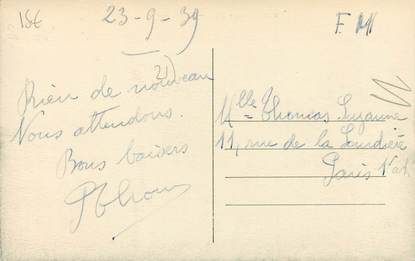 18€
23-9-39
F M
Rien de nouveau
Nous attendons.
Bons baisers
PThom
Mlle Thomas Suzanne
11, rue de la Sourdière
Paris 1er